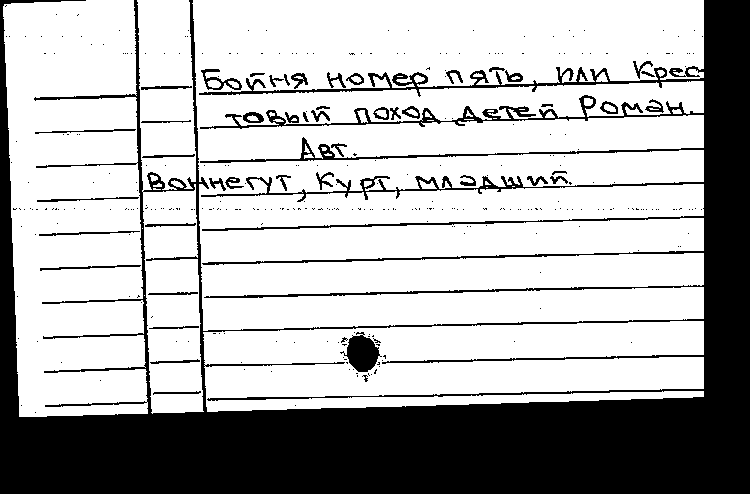 Бойня номер пять, или Крес-
товый поход детей. Роман.
Авт.
Воннегут, Курт, младший.